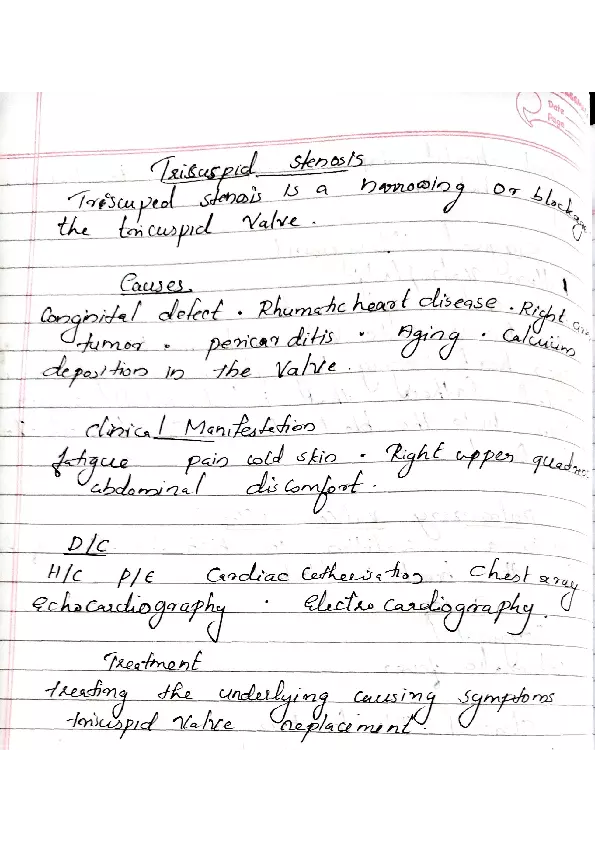 Date
Page
Tricuspid stenosis
Triscuped stenosis is a narrowing or blockage
the tricuspid Valve.
Causes.
Conginital defect . Rhumatic heart disease . Right
tumor . pericarditis . Aging . Calcium
deposition in the Valve.
Clinical Manifestation
fatigue pain cold skin . Right upper
abdominal discomfort.
D/C
H/C P/E Cardiac Catherisation . Chest xray
Echocardiography . Electro cardiography.
Treatment
treating the underlying causing symptoms
tricuspid Valve replacement.